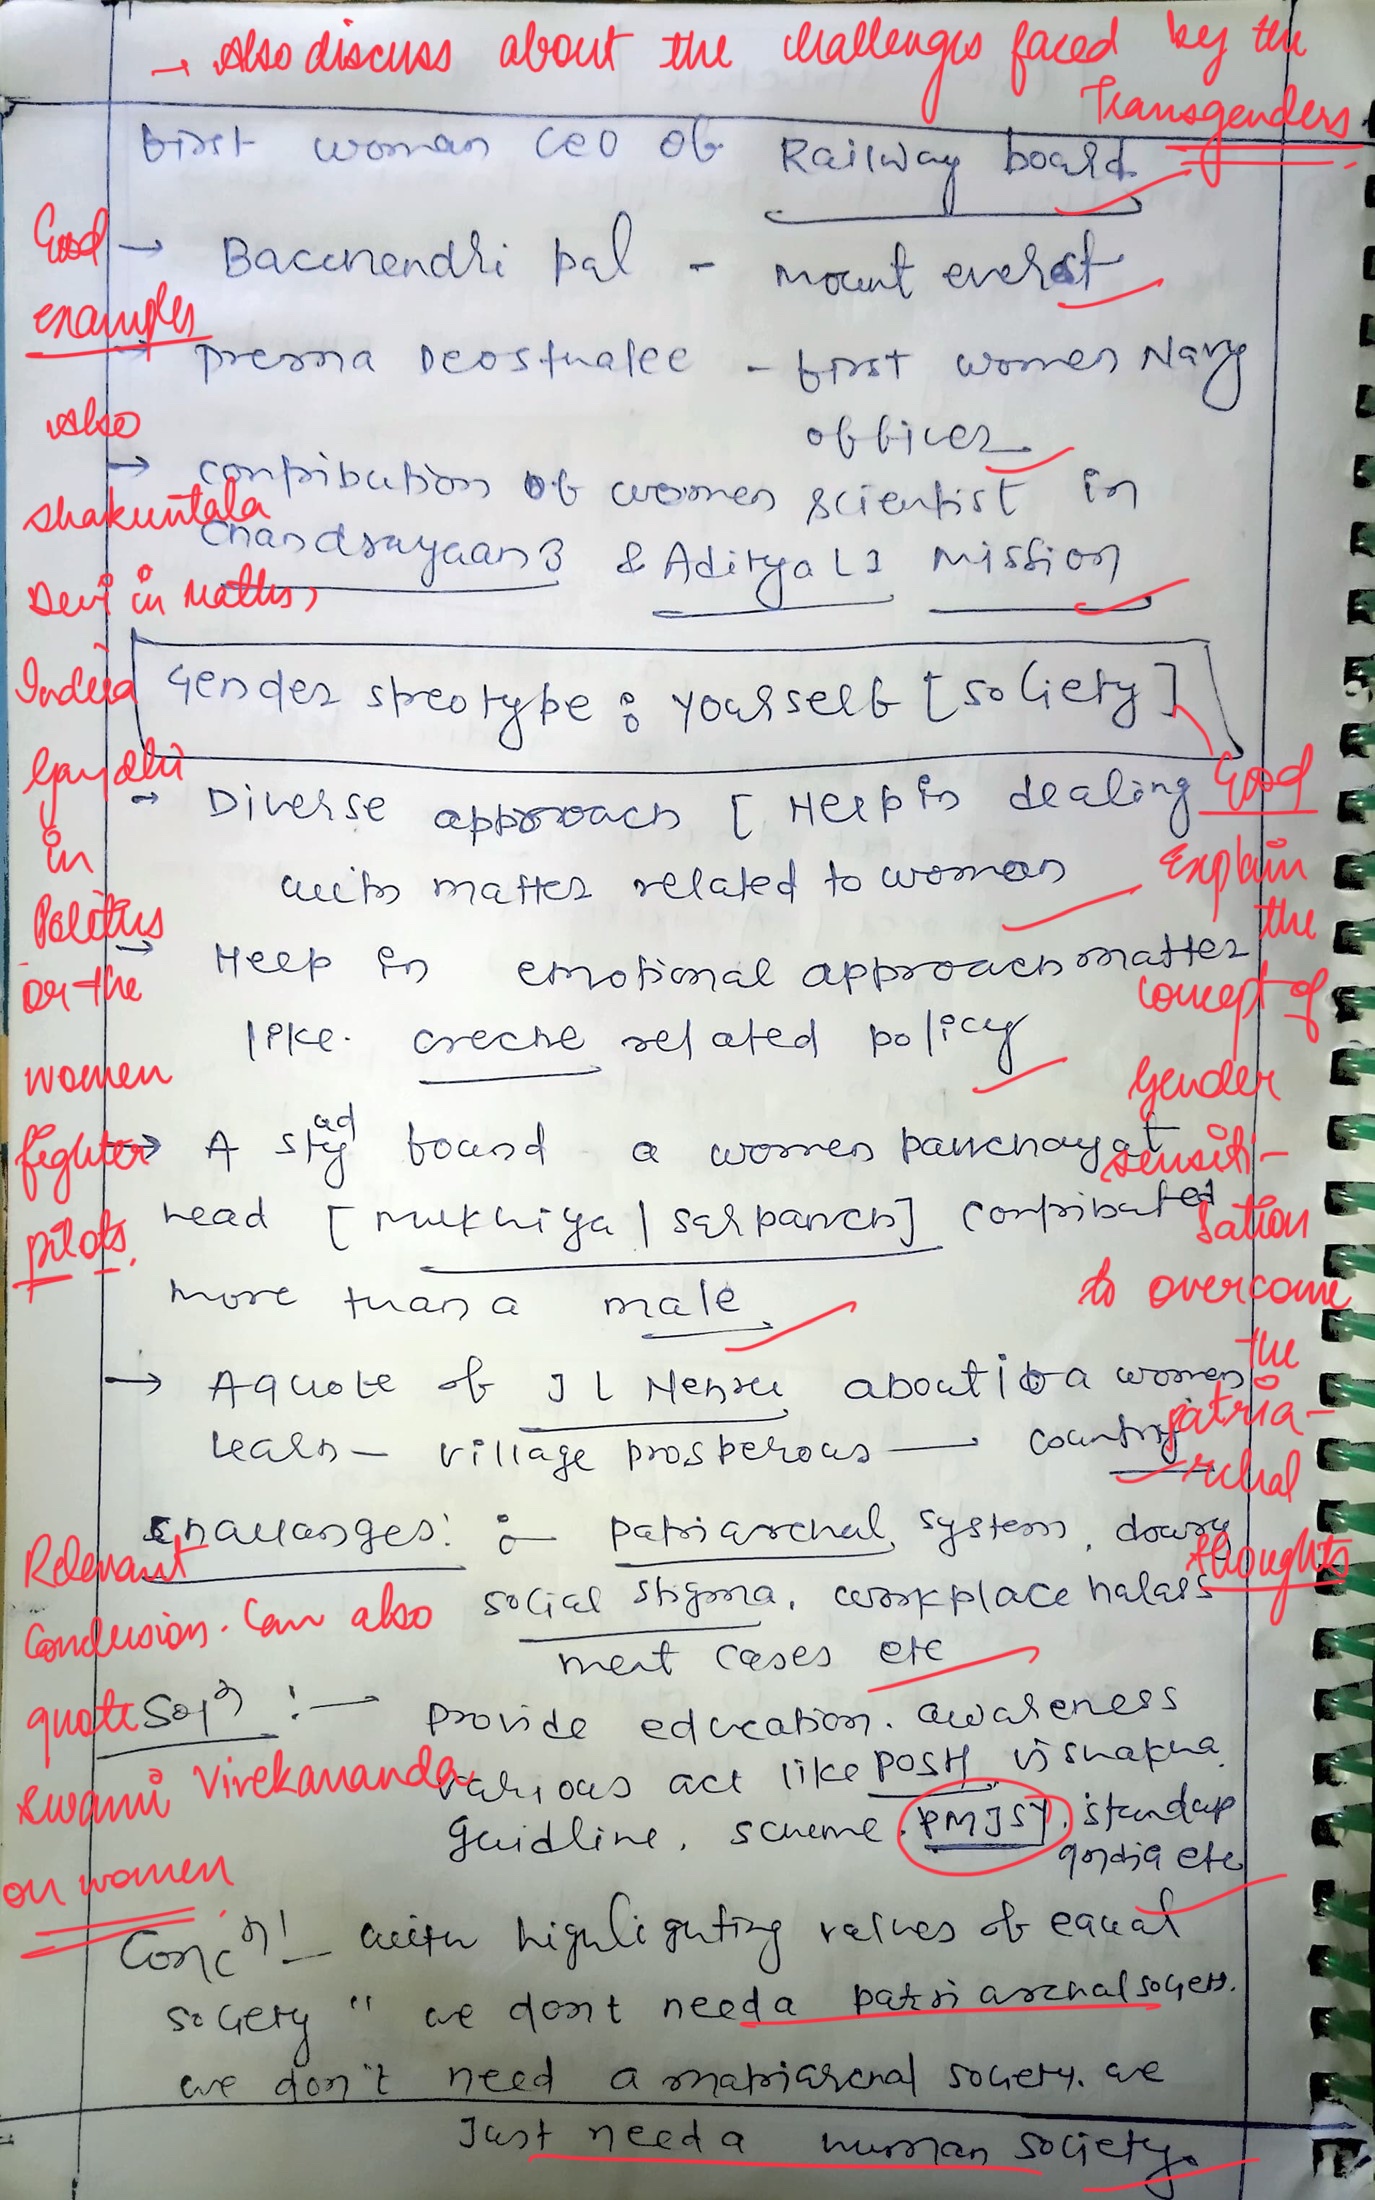 → Also discuss about the challenges faced by the
Transgenders.
first woman CEO of Railway board.
Good
examples
→ Bacchendri pal - mount everest
→ prerna Deosthalee - first women Navy
officer
→ contribution of women scientist in
chandrayaan 3 & Aditya L1 Mission
Also
shakuntala
Devi in Maths,
Indira
Gandhi
in
Politics
or the
women
fighter
pilots.
Gender streotype : yourself [society]
Good
→ Diverse approach [ Help in dealing
with matter related to woman
→ Help in emotional approach matter
like creche related policy
→ A study found a women panchayat
head [mukhiya / sarpanch] contributed
more than a male
→ A quote of J L Nehru about if a women
learn - village prosperous — country
Explain
the
concept of
Gender
sensiti-
sation
to overcome
the
patria-
rchal
thoughts
challanges : - patriarchal system, dowry
social stigma, workplace harass
ment cases etc
Relevant
Conclusion. Can also
quote
Swami Vivekananda
on women
Sol^n :- provide education, awareness
various act like POSH, vishakha
guidline, scheme. PMJSY, standup
india etc
Conc^n :- with highlighting values of equal
society "we don't need a patriarchal society.
we don't need a matriarchal society. we
Just need a human society.